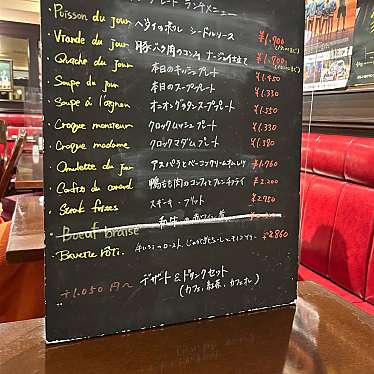 プレート ランチメニュー
・Poisson du jour ペタイユポワル シードルソース ¥1,900
・Viande du jour 豚バラ肉のコンフィ ナージュ仕立て ¥1,900
・Quiche du jour 本日のキッシュプレート ¥1.450
・Soupe du jour 本日のスーププレート ¥1.330
・Soupe à l'ognon オニオングラタンスーププレート ¥1.550
・Croque monsieur クロックムッシュプレート ¥1.330
・Croque madame クロックマダムプレート ¥1.380
・Omulette du jour アスパラとベーコンクリームオムレツ ¥1.760
・Confit du canard 鴨もも肉のコンフィとフレンチフライ ¥2.200
・Steak frites ステーキ・フリット ¥2.750
・Boeuf braise
・Bavette rôti. ¥2860
+1.050円〜 デザート&ドリンクセット
(カフェ、紅茶、カフェオレ)